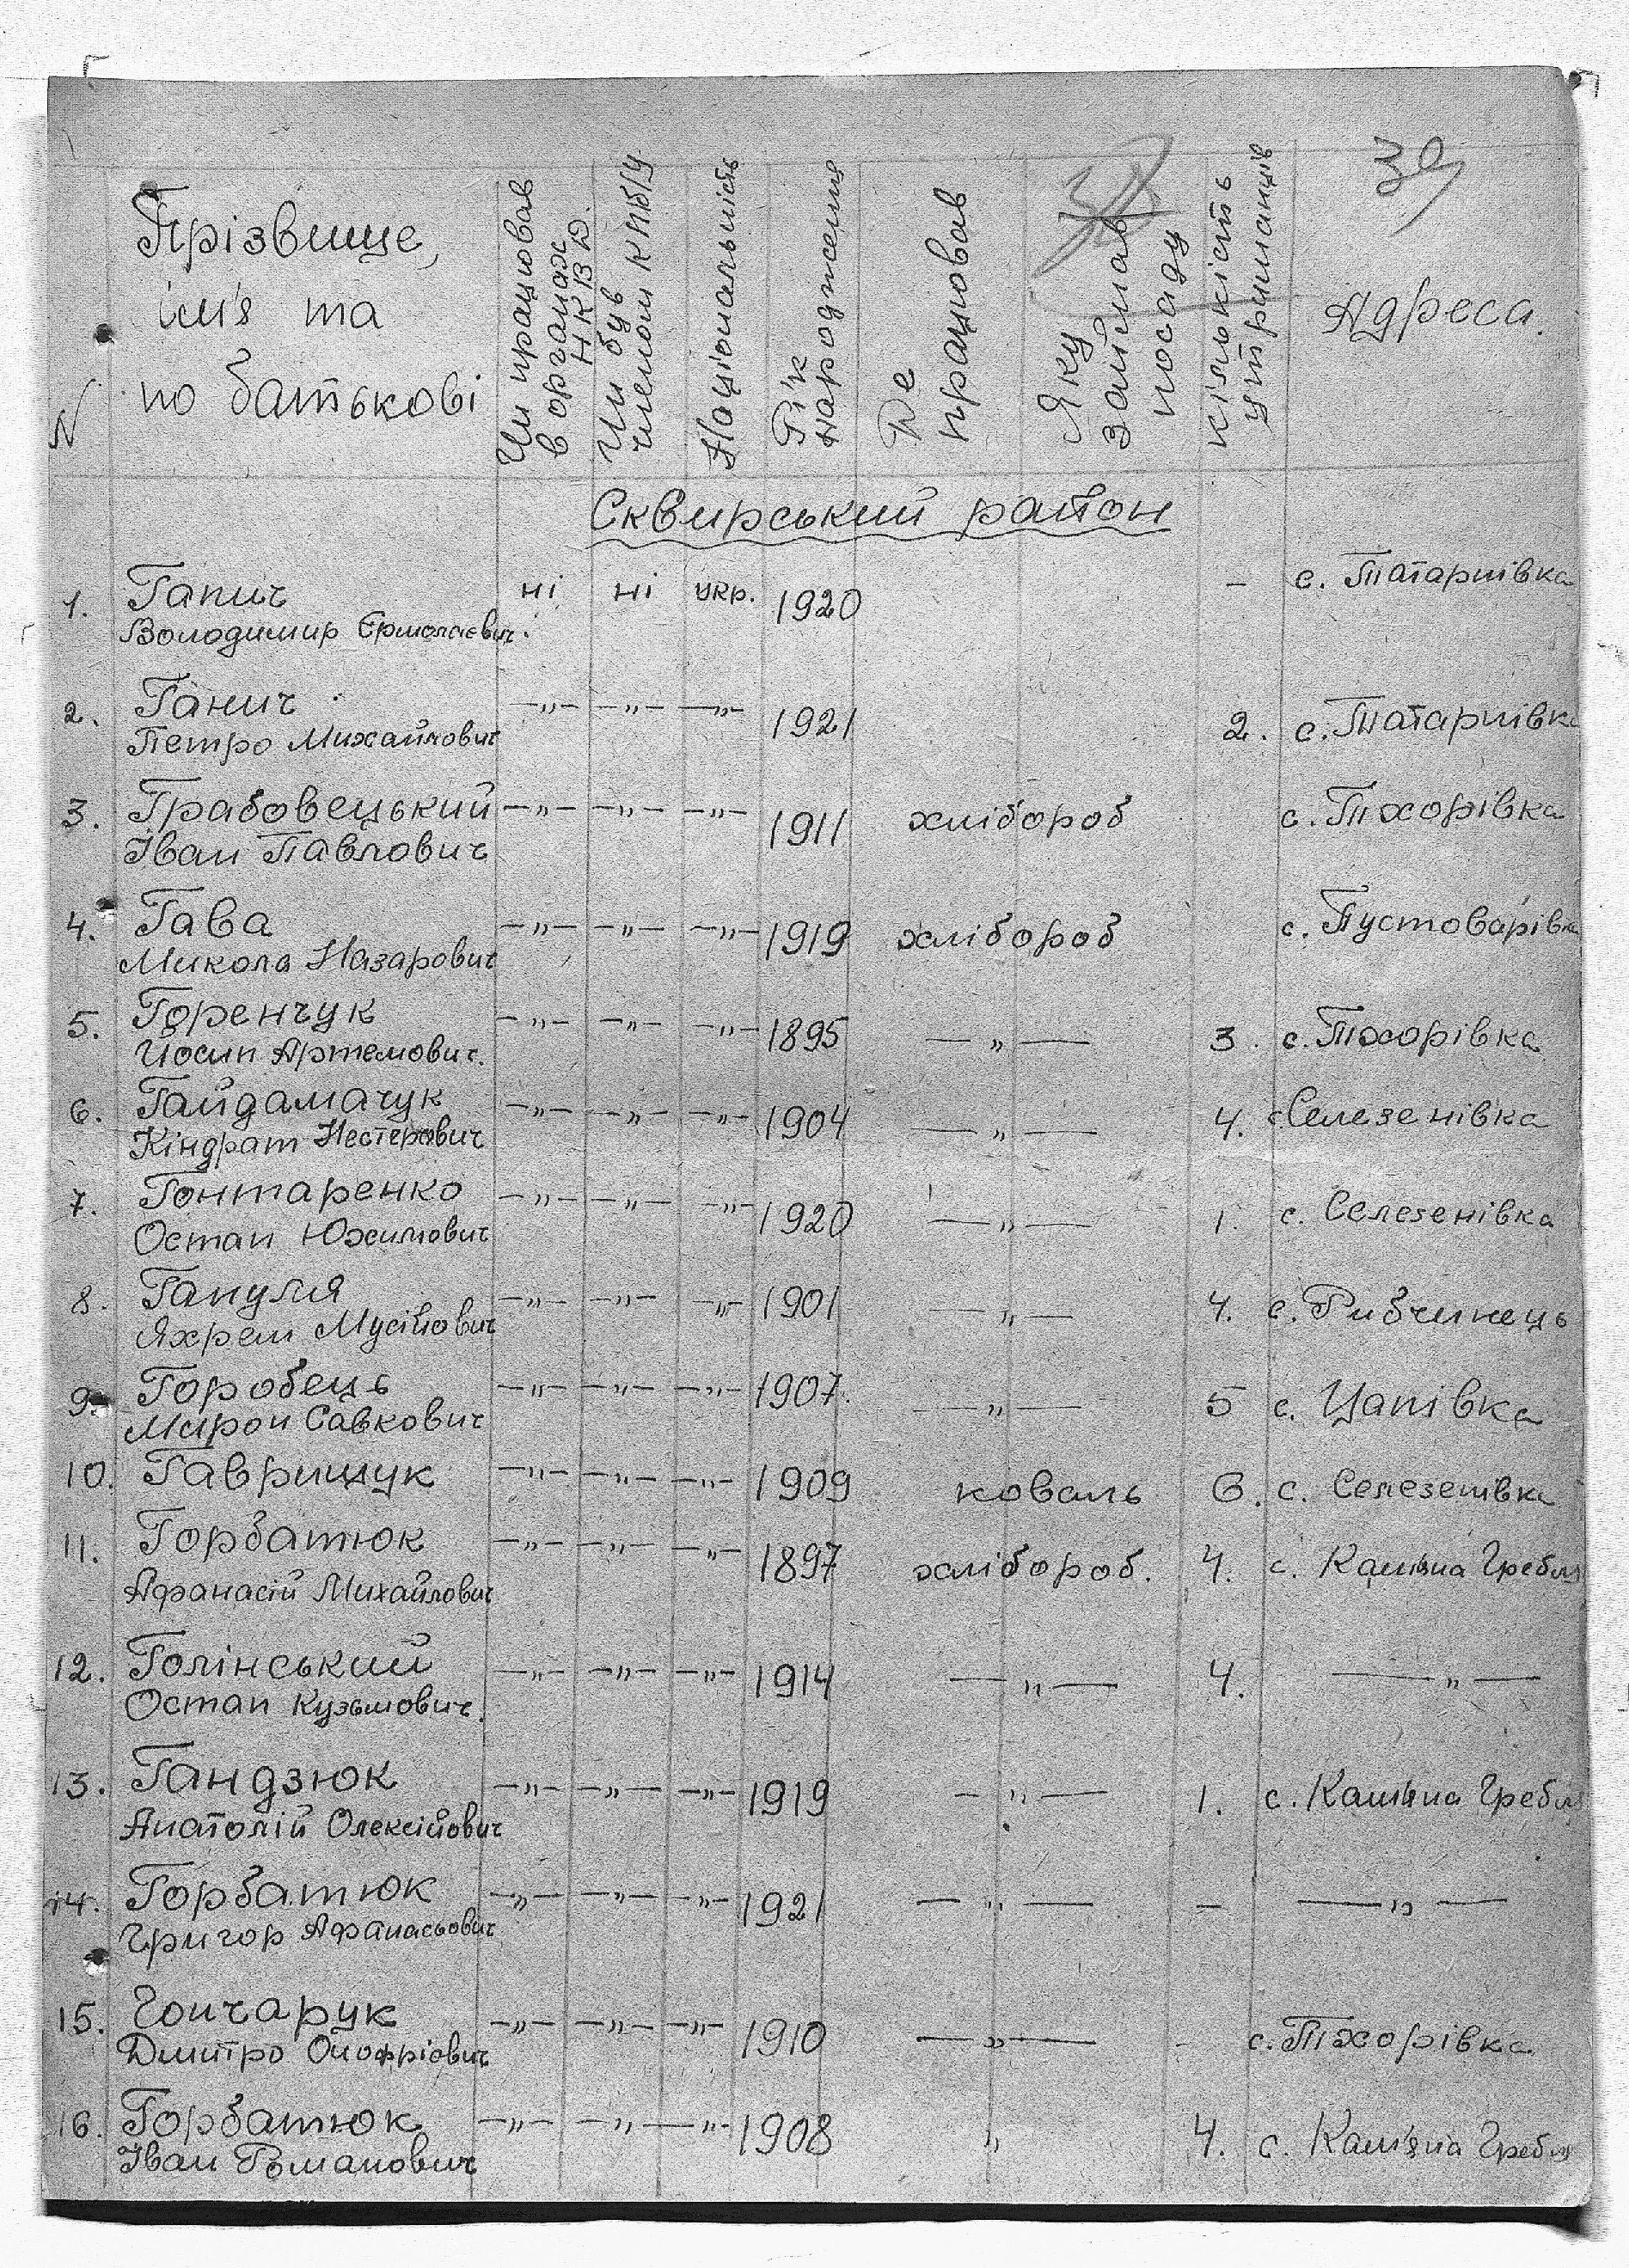 39
38
N Прізвище, ім'я та по батькові Чи працював в органах НКВД. Чи був членом КПб/У Національність Рік народження Де працював Яку займав посаду Кількість утриманців Адреса.
Сквирський район
1. Ганич ні ні укр. 1920 - с. Татарнівка
Володимир Єрмолаєвич.
2. Ганич —"— —"— —"— 1921 2. с. Татарнівка
Петро Михайлович
3. Грабовецький —"— —"— —"— 1911 хлібороб с. Тхорівка
Іван Павлович
4. Гава —"— —"— —"— 1919 хлібороб с. Пустоварівка
Микола Назарович
5. Горенчук —"— —"— —"— 1895 —"— 3. с. Тхорівка
Йосип Артемович.
6. Гайдамачук —"— —"— —"— 1904 —"— 4. с. Селезенівка
Кіндрат Нестерович
7. Гонтаренко —"— —"— —"— 1920 —"— 1. с. Селезенівка
Остап Юхимович
8. Гануля —"— —"— —"— 1901 —"— 4. с. Рибчинець
Яхрем Мусійович
9. Горобець —"— —"— —"— 1907. —"— 5 с. Цапівка
Мирон Савкович
10. Гаврищук —"— —"— —"— 1909 коваль 6. с. Селезенівка
11. Горбатюк —"— —"— —"— 1897 хлібороб. 4. с. Кам'яна Гребля
Афанасій Михайлович
12. Голінський —"— —"— —"— 1914 —"— 4. —"—
Остап Кузьмович.
13. Гандзюк —"— —"— —"— 1919 —"— 1. с. Кам'яна Гребля
Анатолій Олексійович
14. Горбатюк —"— —"— —"— 1921 —"— - —"—
Григор Афанасьович
15. Гончарук —"— —"— —"— 1910 —"— с. Тхорівка
Дмитро Онофрієвич
16. Горбатюк —"— —"— —"— 1908 " 4. с. Кам'яна Гребля
Іван Романович